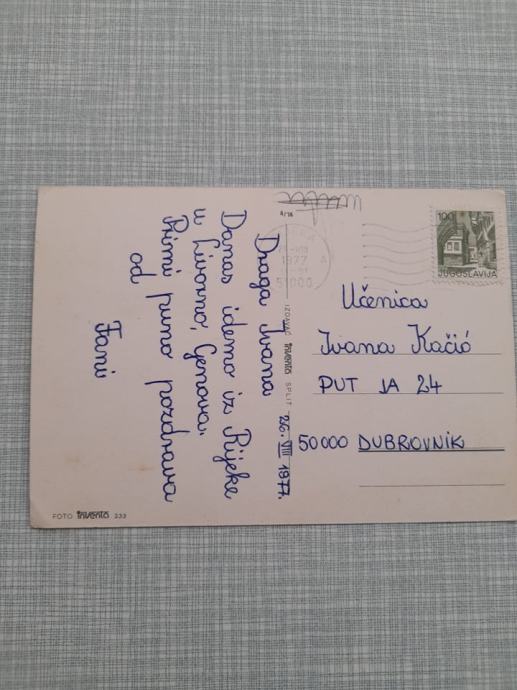 Draga Ivana
Danas idemo iz Rijeke
u Livorno, Genova.
Primi puno pozdrava
od
Fani
26. VIII 1977.
4/16
IZDAVAČ inventa SPLIT
FOTO inventa 333
1977
51000
A
100
JUGOSLAVIJA
Učenica
Ivana Kačić
PUT JA 24
50000 DUBROVNIK